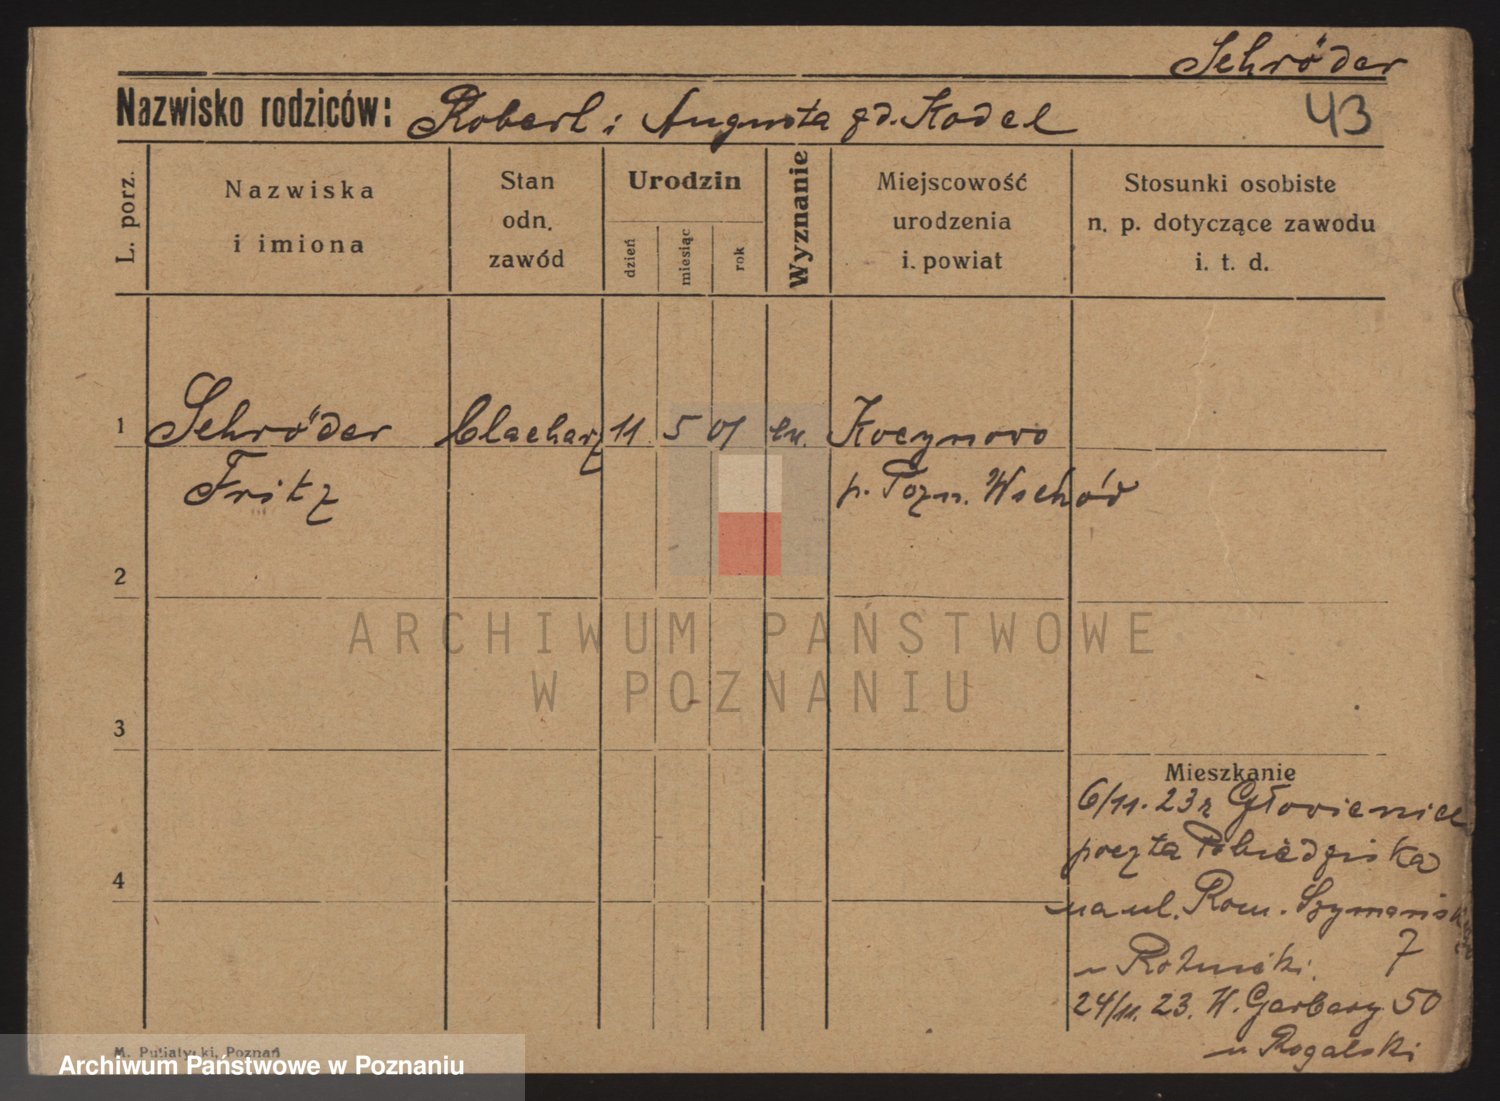 Schröder
Nazwisko rodziców: Robert i Augusta zd. Kodel
43
L. porz.
Nazwiska
i imiona
Stan
odn.
zawód
Urodzin
dzień
miesiąc
rok
Wyznanie
Miejscowość
urodzenia
i. powiat
Stosunki osobiste
n. p. dotyczące zawodu
i. t. d.
1
Schröder
Fritz
blacharz
11 5 01 ew.
Kocynowo
p. Pozn. Wschód
2
ARCHIWUM PAŃSTWOWE
W POZNANIU
3
Mieszkanie
6/11. 23 z
poczta Pobiedziska
4
na ul. Rom. Szymańsk
7
24/11. 23. W. Garbary 50
u Rogalski
M. Putiatycki, Poznań
Archiwum Państwowe w Poznaniu